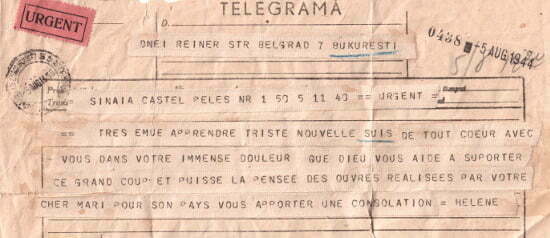 TELEGRAMĂ
URGENT
D
0438 5 AUG 1944
DNEI REINER STR BELGRAD 7 BUKURESTI
5/8
SINAIA CASTEL PELES NR 1 50 5 11 40 == URGENT =
== TRES EMUE APPRENDRE TRISTE NOUVELLE SUIS DE TOUT COEUR AVEC
VOUS DANS VOTRE IMMENSE DOULEUR QUE DIEU VOUS AIDE A SUPORTER
CE GRAND COUP ET PUISSE LA PENSEE DES OUVRES REALISEES PAR VOTRE
CHER MARI POUR SON PAYS VOUS APPORTER UNE CONSOLATION = HELENE